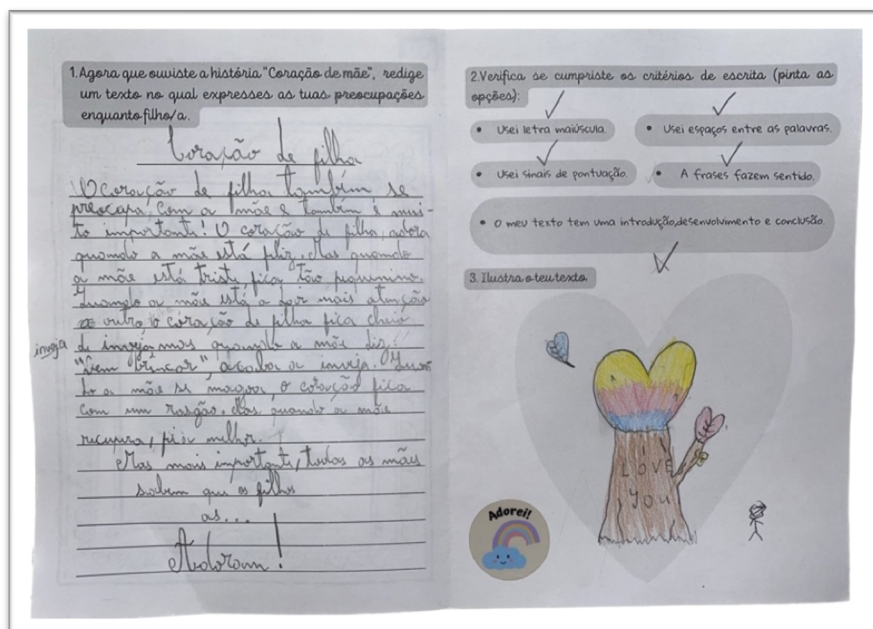 1. Agora que ouviste a história "Coração de mãe", redige
um texto no qual expresses as tuas preocupações
enquanto filho/a.
Coração de filha
O coração de filha também se
preocupa, com a mãe e também é mui-
to importante! O coração de filha, adora
quando a mãe está feliz. Mas quando
a mãe está triste, fica tão pequenino.
Quando a mãe está a dar mais atenção
a outro, o coração de filha fica cheio
de inveja mas quando a mãe diz:
inveja
"Vem brincar", acaba a inveja. Quan
do a mãe se magoa, o coração fica
com um rasgão. Mas quando a mãe
recupera, fica melhor.
Mas mais importante, todas as mães
sabem que os filhos
as...
Adoram!
2. Verifica se cumpriste os critérios de escrita (pinta as
opções):
• Usei letra maiúscula.
• Usei espaços entre as palavras.
• Usei sinais de pontuação.
• A frases fazem sentido.
• O meu texto tem uma introdução, desenvolvimento e conclusão.
3. Ilustra o teu texto.
I
LOVE
YOU
Adorei!